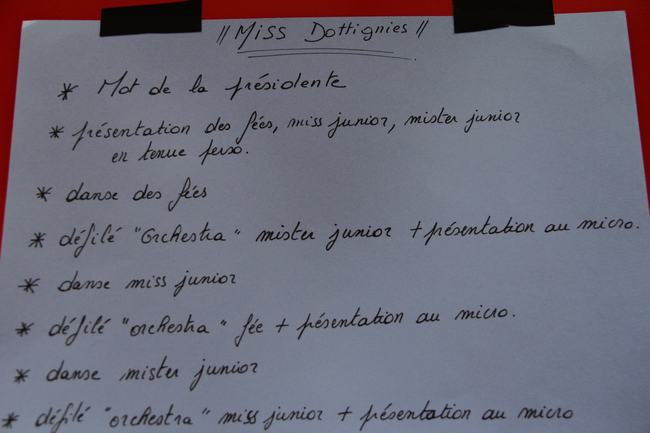 // Miss Dottignies //
* Mot de la présidente
* présentation des fées, miss junior, mister junior
en tenue perso.
* danse des fées
* défilé "Orchestra" mister junior + présentation au micro.
* danse miss junior
* défilé "orchestra" fée + présentation au micro.
* danse mister junior
* défilé "orchestra" miss junior + présentation au micro